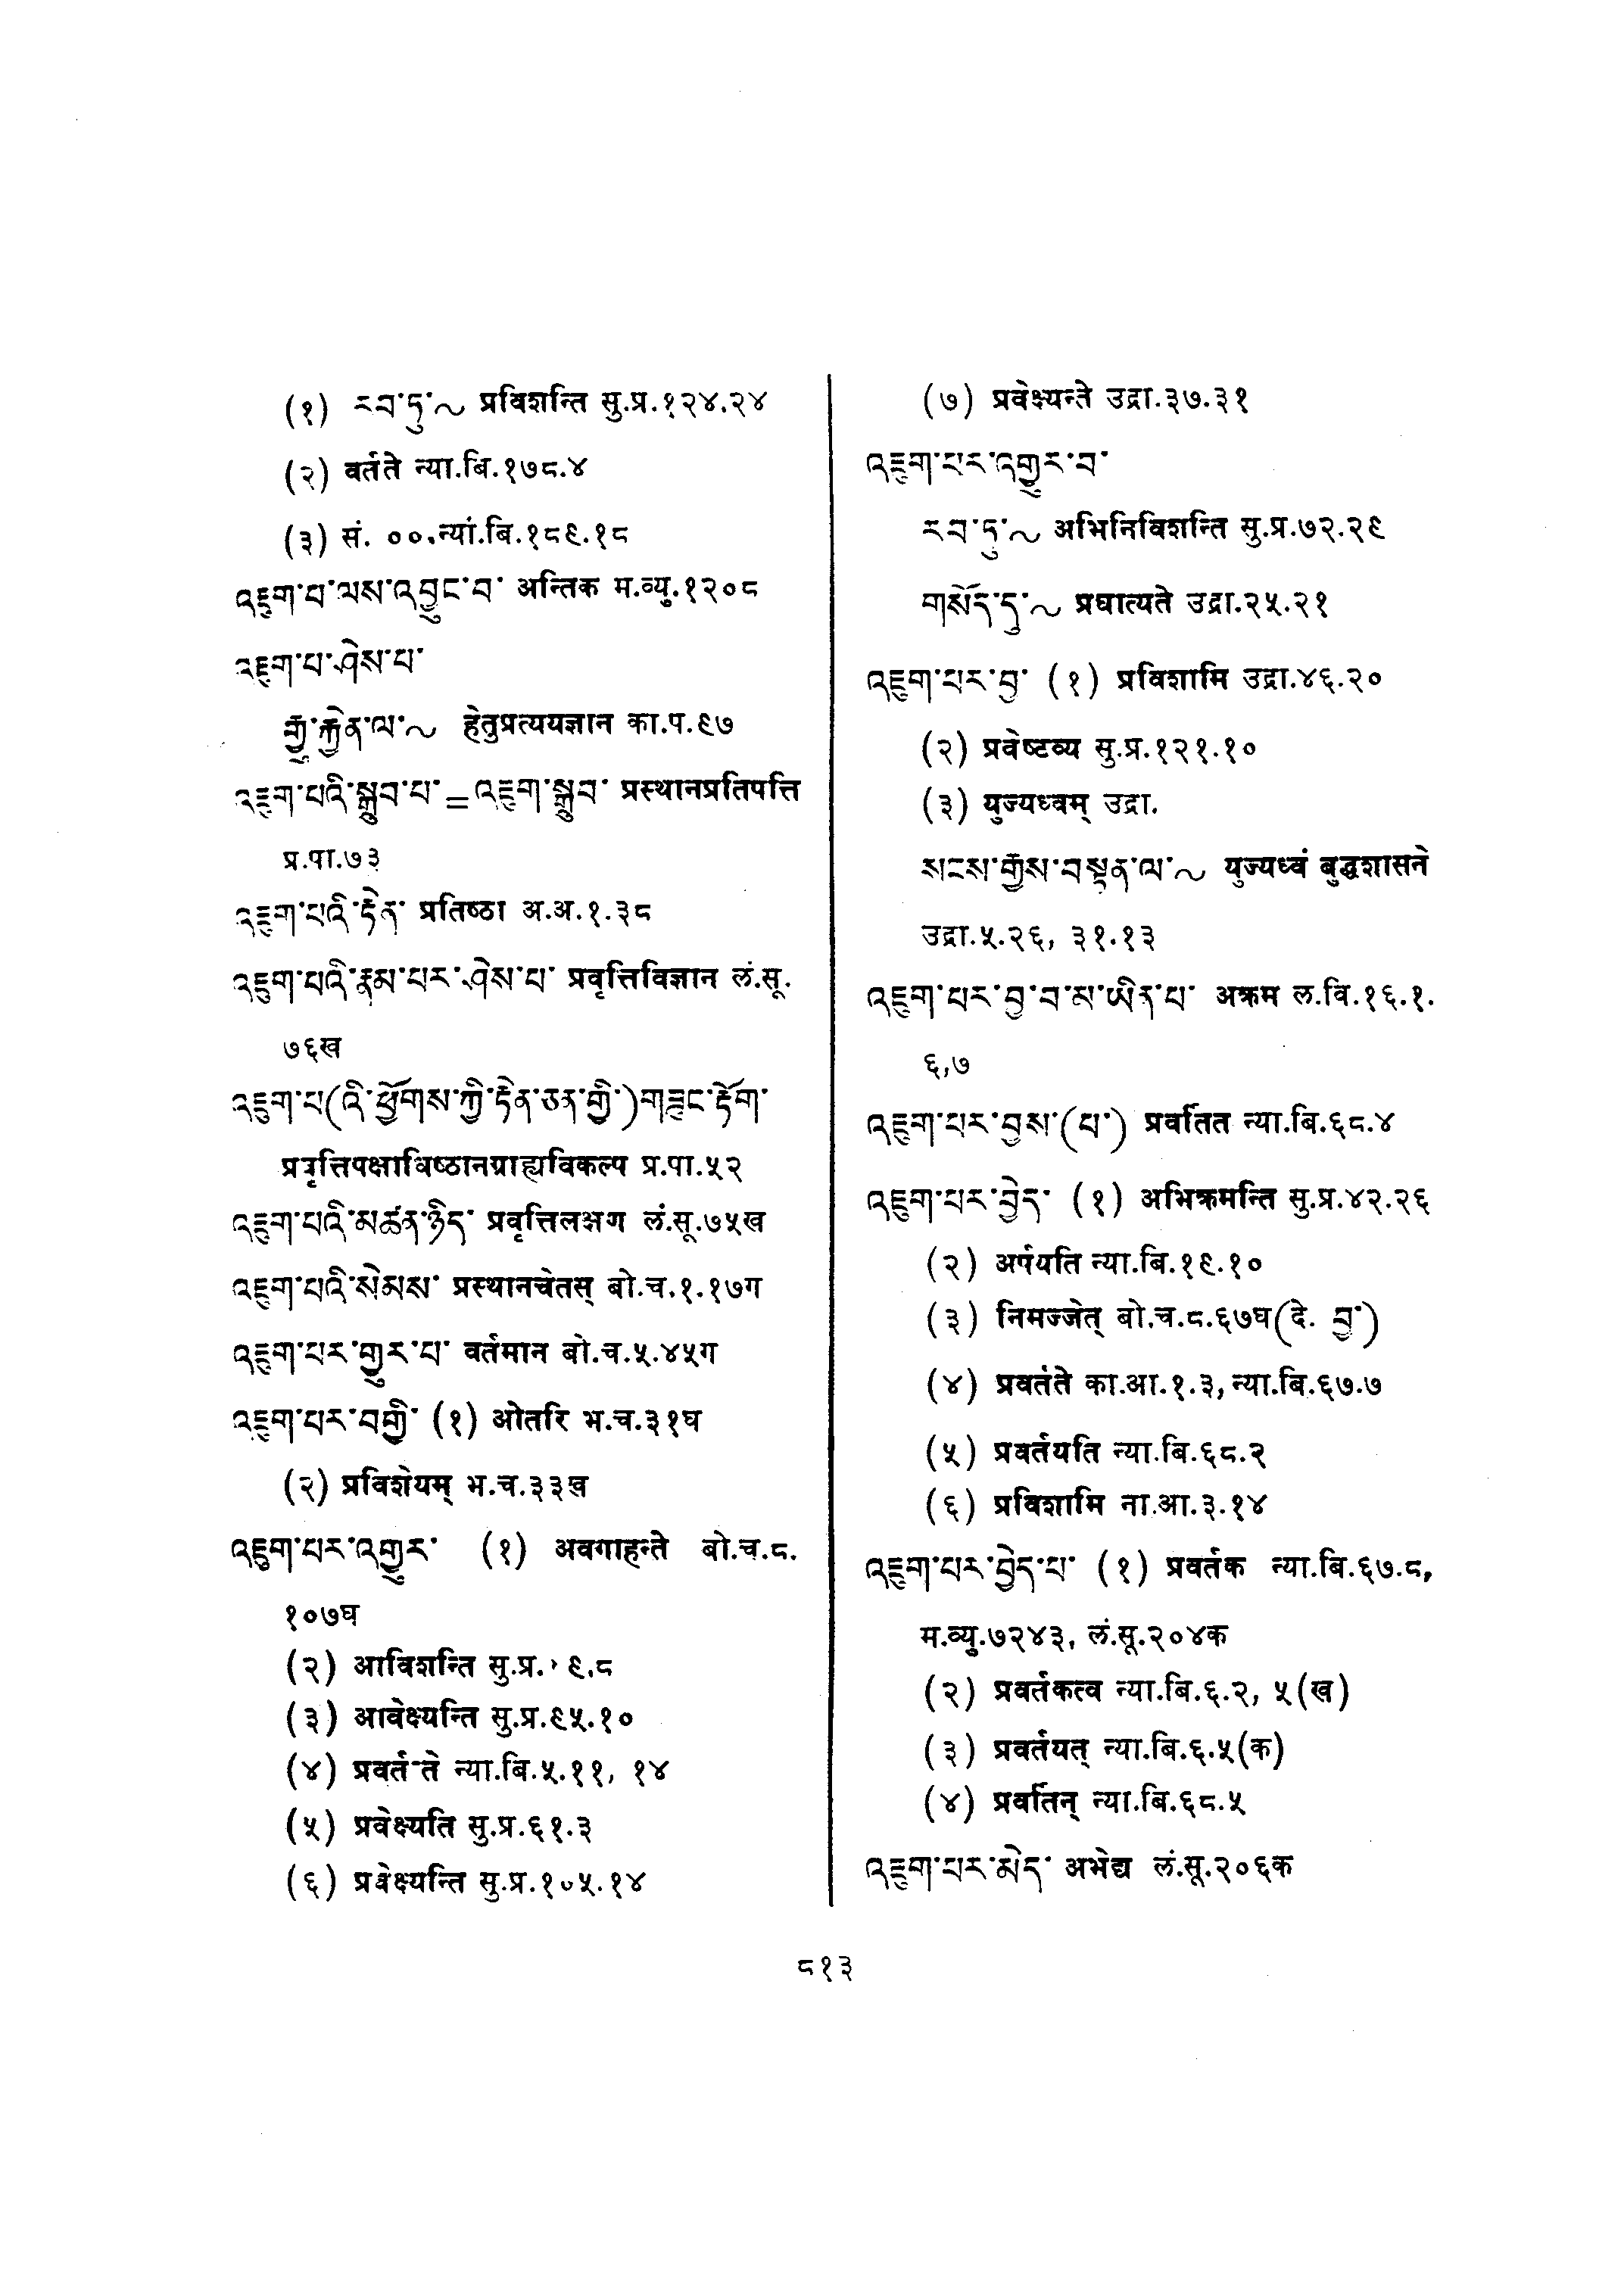 (१) རབ་ཏུ་~ प्रविशन्ति सु.प्र.१२४.२४
(२) वर्तते न्या.बि.१७८.४
(३) सं. ००.न्यां.बि.१८९.१८
འཇུག་པ་ལས་འབྱུང་བ་ अन्तिक म.व्यु.१२०८
འཇུག་པ་ཤེས་པ་
རྒྱུ་རྐྱེན་ལ་~ हेतुप्रत्ययज्ञान का.प.९७
འཇུག་པའི་སྒྲུབ་པ་=འཇུག་སྒྲུབ་ प्रस्थानप्रतिपत्ति
प्र.पा.७३
འཇུག་པའི་རྟེན་ प्रतिष्ठा अ.अ.१.३८
འཇུག་པའི་རྣམ་པར་ཤེས་པ་ प्रवृत्तिविज्ञान लं.सू.
७६ख
འཇུག་པ(འི་ཕྱོགས་ཀྱི་རྟེན་ཅན་གྱི་)གཟུང་རྟོག་
प्रवृत्तिपक्षाधिष्ठानग्राह्यविकल्प प्र.पा.५२
འཇུག་པའི་མཚན་ཉིད་ प्रवृत्तिलक्षण लं.सू.७५ख
འཇུག་པའི་སེམས་ प्रस्थानचेतस् बो.च.१.१७ग
འཇུག་པར་གྱུར་པ་ वर्तमान बो.च.५.४५ग
འཇུག་པར་བགྱི་ (१) ओतरि भ.च.३१घ
(२) प्रविशेयम् भ.च.३३ख
འཇུག་པར་འགྱུར་ (१) अवगाहन्ते बो.च.८.
१०७घ
(२) आविशन्ति सु.प्र. ९.८
(३) आवेक्ष्यन्ति सु.प्र.९५.१०
(४) प्रवर्तते न्या.बि.५.११, १४
(५) प्रवेक्ष्यति सु.प्र.६१.३
(६) प्रवेक्ष्यन्ति सु.प्र.१०५.१४
(७) प्रवेक्ष्यन्ते उद्रा.३७.३१
འཇུག་པར་འགྱུར་བ་
རབ་ཏུ་~ अभिनिविशन्ति सु.प्र.७२.२९
གསོད་དུ་~ प्रघात्यते उद्रा.२५.२१
འཇུག་པར་བྱ་ (१) प्रविशामि उद्रा.४६.२०
(२) प्रवेष्टव्य सु.प्र.१२१.१०
(३) युज्यध्वम् उद्रा.
སངས་རྒྱས་བསྟན་ལ་~ युज्यध्वं बुद्धशासने
उद्रा.५.२६, ३१.१३
འཇུག་པར་བྱ་བ་མ་ཡིན་པ་ अक्रम ल.वि.१६.१.
६,७
འཇུག་པར་བྱས་(པ་) प्रवर्तित न्या.बि.६८.४
འཇུག་པར་བྱེད་ (१) अभिक्रमन्ति सु.प्र.४२.२६
(२) अर्पयति न्या.बि.१९.१०
(३) निमज्जेत् बो.च.८.६७घ(दे. བྱ་)
(४) प्रवर्तते का.आ.१.३, न्या.बि.६७.७
(५) प्रवर्तयति न्या.बि.६८.२
(६) प्रविशामि ना.आ.३.१४
འཇུག་པར་བྱེད་པ་ (१) प्रवर्तक न्या.बि.६७.८,
म.व्यु.७२४३, लं.सू.२०४क
(२) प्रवर्तकत्व न्या.बि.६.२, ५(ख)
(३) प्रवर्तयत् न्या.बि.६.५(क)
(४) प्रवर्तिन् न्या.बि.६८.५
འཇུག་པར་མེད་ अभेद्य लं.सू.२०६क
८१३